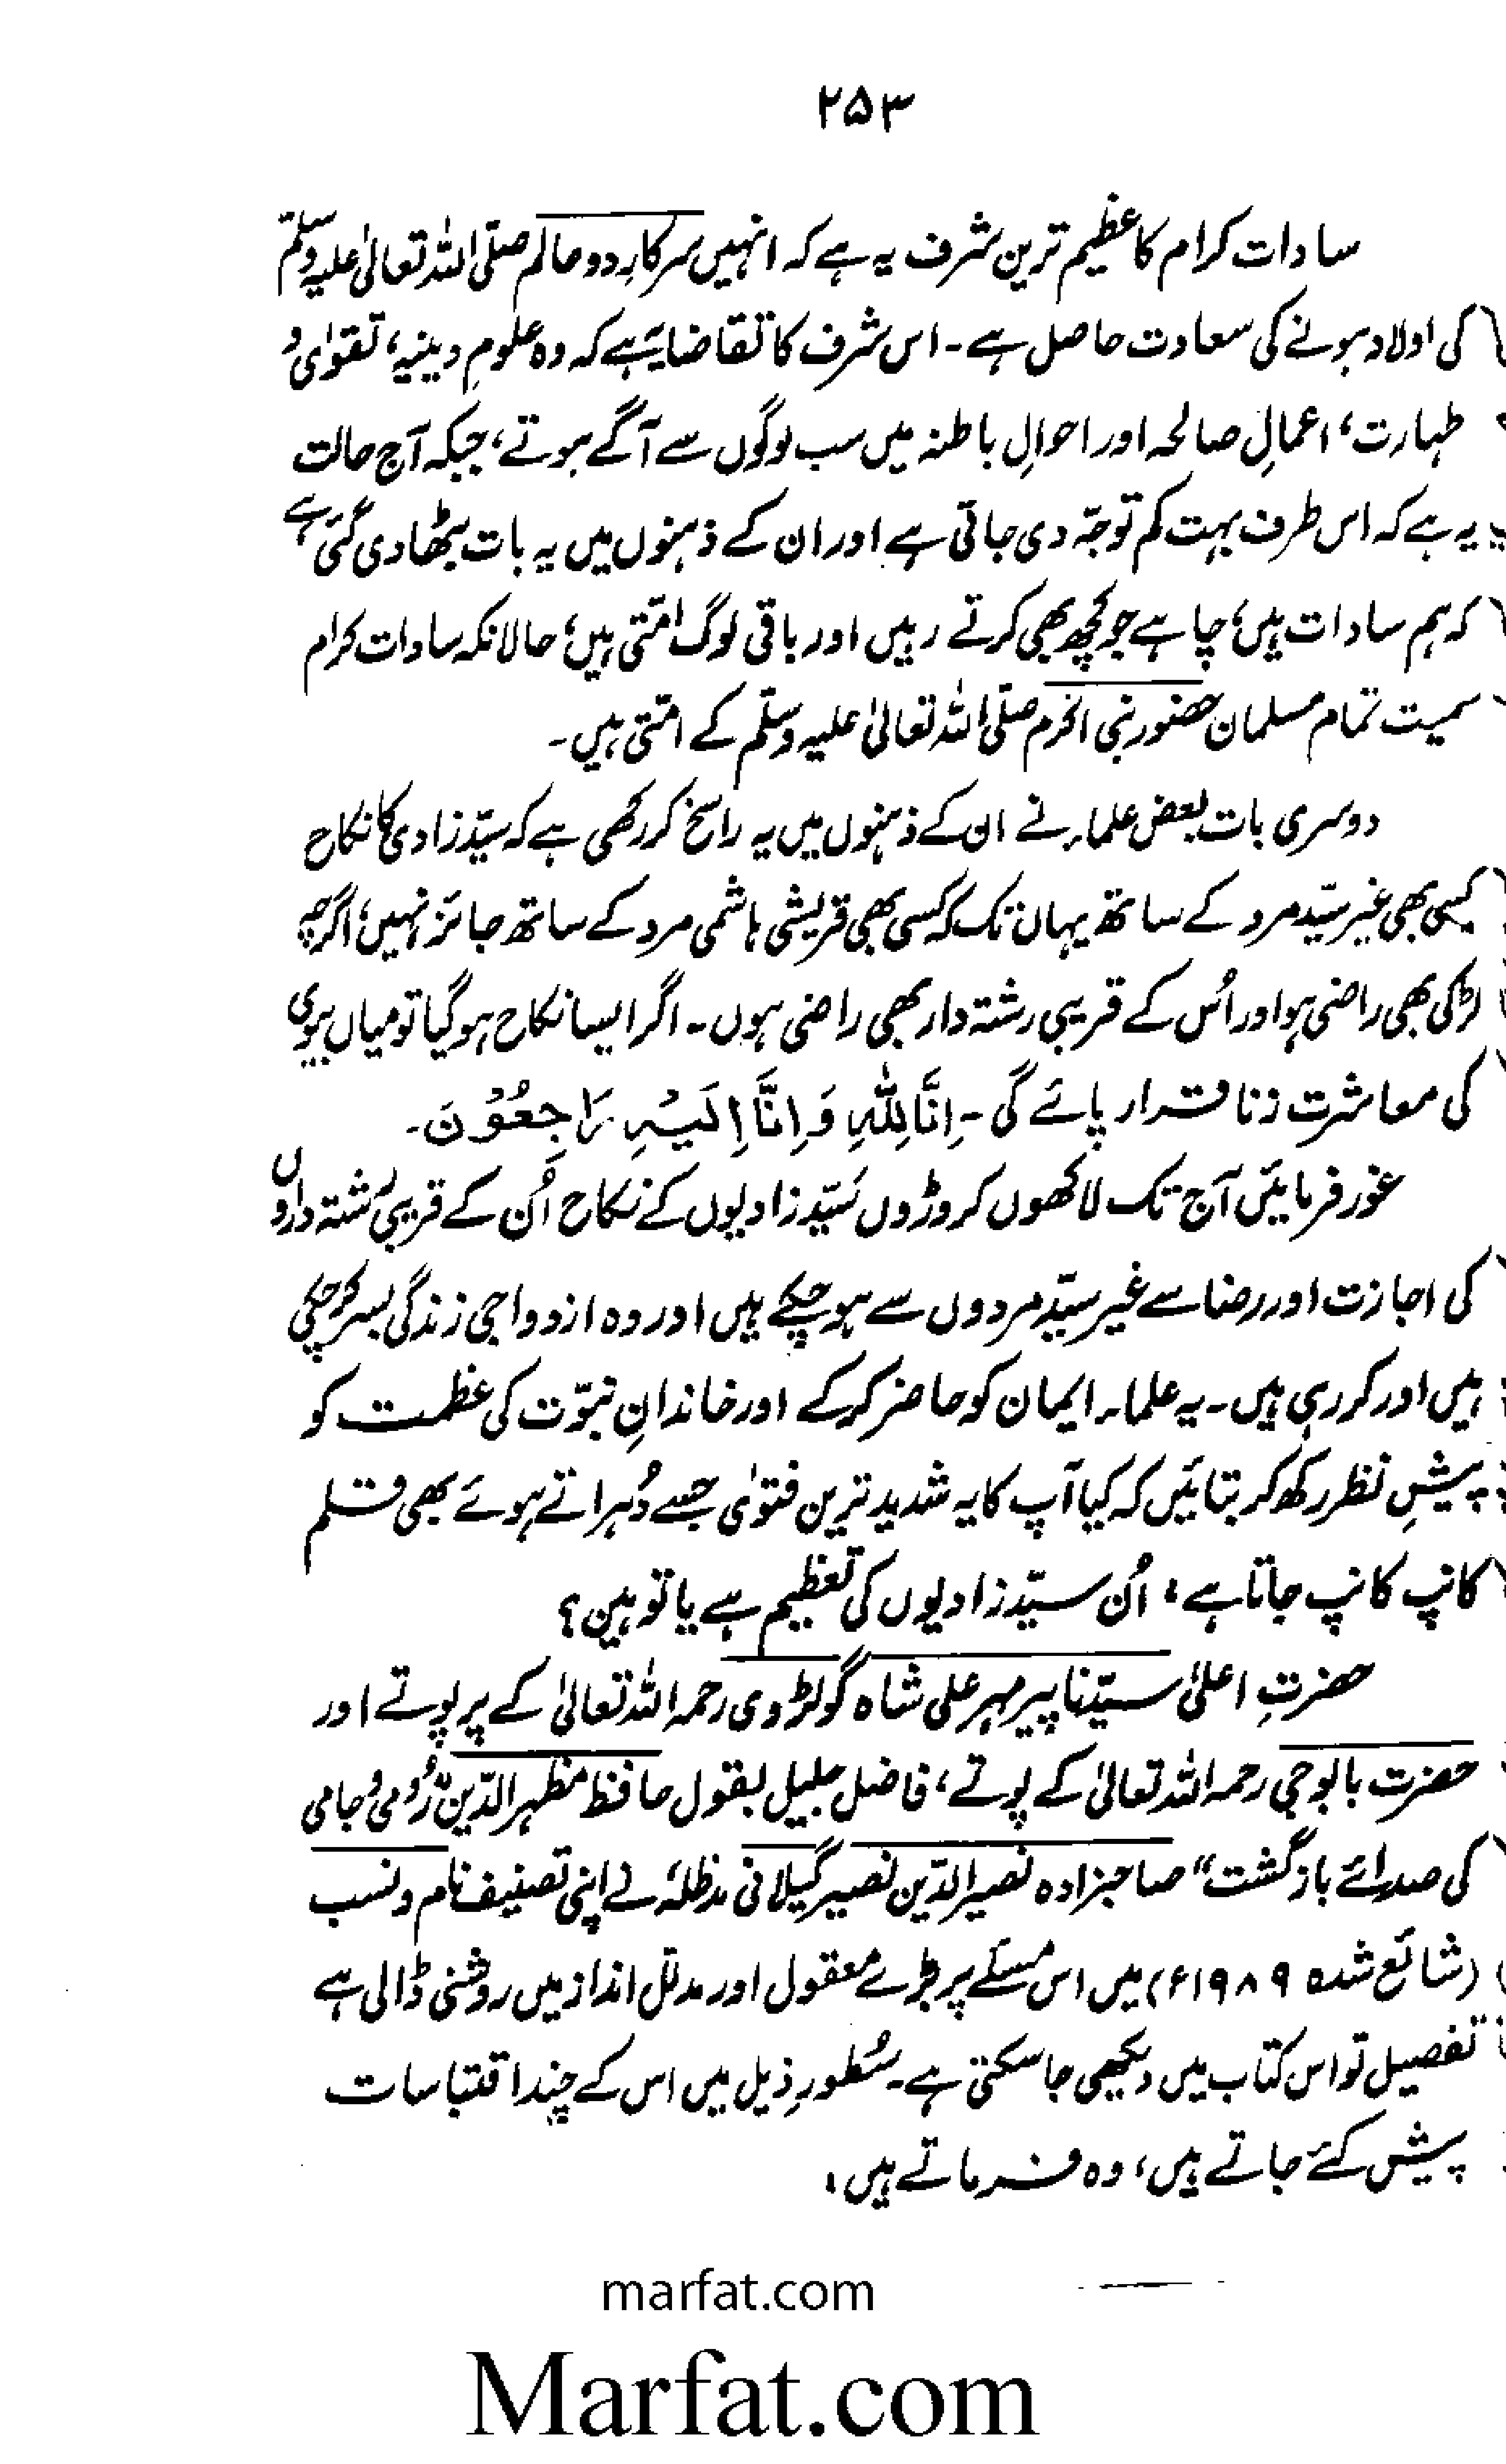 ۲۵۳
سادات کرام کا عظیم ترین شرف یہ ہے کہ انہیں سرکارِ دو عالم صلّی اللہ تعالیٰ علیہ وسلّم
کی اولاد ہونے کی سعادت حاصل ہے۔ اس شرف کا تقاضا یہ ہے کہ وہ علومِ دینیہ، تقویٰ و
طہارت، اعمالِ صالحہ اور احوالِ باطنہ میں سب لوگوں سے آگے ہوتے، جبکہ آج حالت
یہ ہے کہ اس طرف بہت کم توجّہ دی جاتی ہے اور ان کے ذہنوں میں یہ بات بٹھا دی گئی ہے
کہ ہم سادات ہیں، چاہے جو کچھ بھی کرتے رہیں اور باقی لوگ امّتی ہیں، حالانکہ سادات کرام
سمیت تمام مسلمان حضور نبی اکرم صلّی اللہ تعالیٰ علیہ وسلّم کے امّتی ہیں۔
دوسری بات بعض علماء نے ان کے ذہنوں میں یہ راسخ کر رکھی ہے کہ سیّد زادی کا نکاح
کسی بھی غیر سیّد مرد کے ساتھ یہاں تک کہ کسی بھی قریشی ہاشمی مرد کے ساتھ جائز نہیں، اگرچہ
لڑکی بھی راضی ہو اور اُس کے قریبی رشتہ دار بھی راضی ہوں۔ اگر ایسا نکاح ہو گیا تو میاں بیوی
کی معاشرت زنا قرار پائے گی۔ اِنَّا لِلّٰہِ وَ اِنَّا اِلَیْہِ رَاجِعُوْنَ۔
غور فرمائیں آج تک لاکھوں کروڑوں سَیّد زادیوں کے نکاح اُن کے قریبی رشتہ داروں
کی اجازت اور رضا سے غیر سیّد مردوں سے ہو چکے ہیں اور وہ ازدواجی زندگی بسر کر چکی
ہیں اور کر رہی ہیں۔ یہ علماء ایمان کو حاضر کر کے اور خاندانِ نبوّت کی عظمت کو
پیشِ نظر رکھ کر بتائیں کہ کیا آپ کا یہ شدید ترین فتویٰ جسے دُہراتے ہوئے بھی قلم
کانپ کانپ جاتا ہے، اُن سیّد زادیوں کی تعظیم ہے یا توہین؟
حضرتِ اعلیٰ سیّدنا پیر مہر علی شاہ گولڑوی رحمہ اللہ تعالیٰ کے پرپوتے اور
حضرت بابوجی رحمہ اللہ تعالیٰ کے پوتے، فاضل جلیل بقول حافظ مظہر الدّین "رُومی و جامی
کی صدائے بازگشت" صاحبزادہ نصیر الدّین نصیر گیلانی مدظلہٗ نے اپنی تصنیف نام و نسب
(شائع شدہ ۱۹۸۹ء) میں اس مسئلے پر بڑے معقول اور مدلّل انداز میں روشنی ڈالی ہے
تفصیل تو اس کتاب میں دیکھی جا سکتی ہے۔ سُطورِ ذیل میں اس کے چند اقتباسات
پیش کئے جاتے ہیں، وہ فرماتے ہیں،
marfat.com
Marfat.com